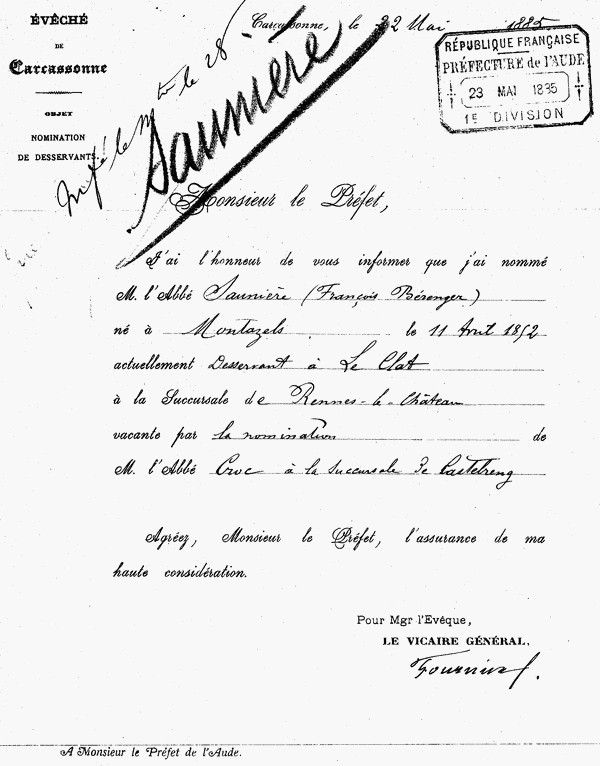 ÉVÊCHÉ
DE
Carcassonne
OBJET
NOMINATION
DE DESSERVANTS.
Carcassonne, le 22 Mai 1885
RÉPUBLIQUE FRANÇAISE
PRÉFECTURE de l'AUDE
23 MAI 1885
1E DIVISION
le 28
Saunière
Monsieur le Préfet,
J'ai l'honneur de vous informer que j'ai nommé
M. l'Abbé Saunière (François Bérenger)
né à Montazels le 11 Avril 1852
actuellement Desservant à Le Clat
à la Succursale de Rennes-le-Château
vacante par la nomination de
M. l'Abbé Croc à la succursale de Castelreng
Agréez, Monsieur le Préfet, l'assurance de ma
haute considération.
Pour Mgr l'Evéque,
LE VICAIRE GÉNÉRAL,
A Monsieur le Préfet de l'Aude.